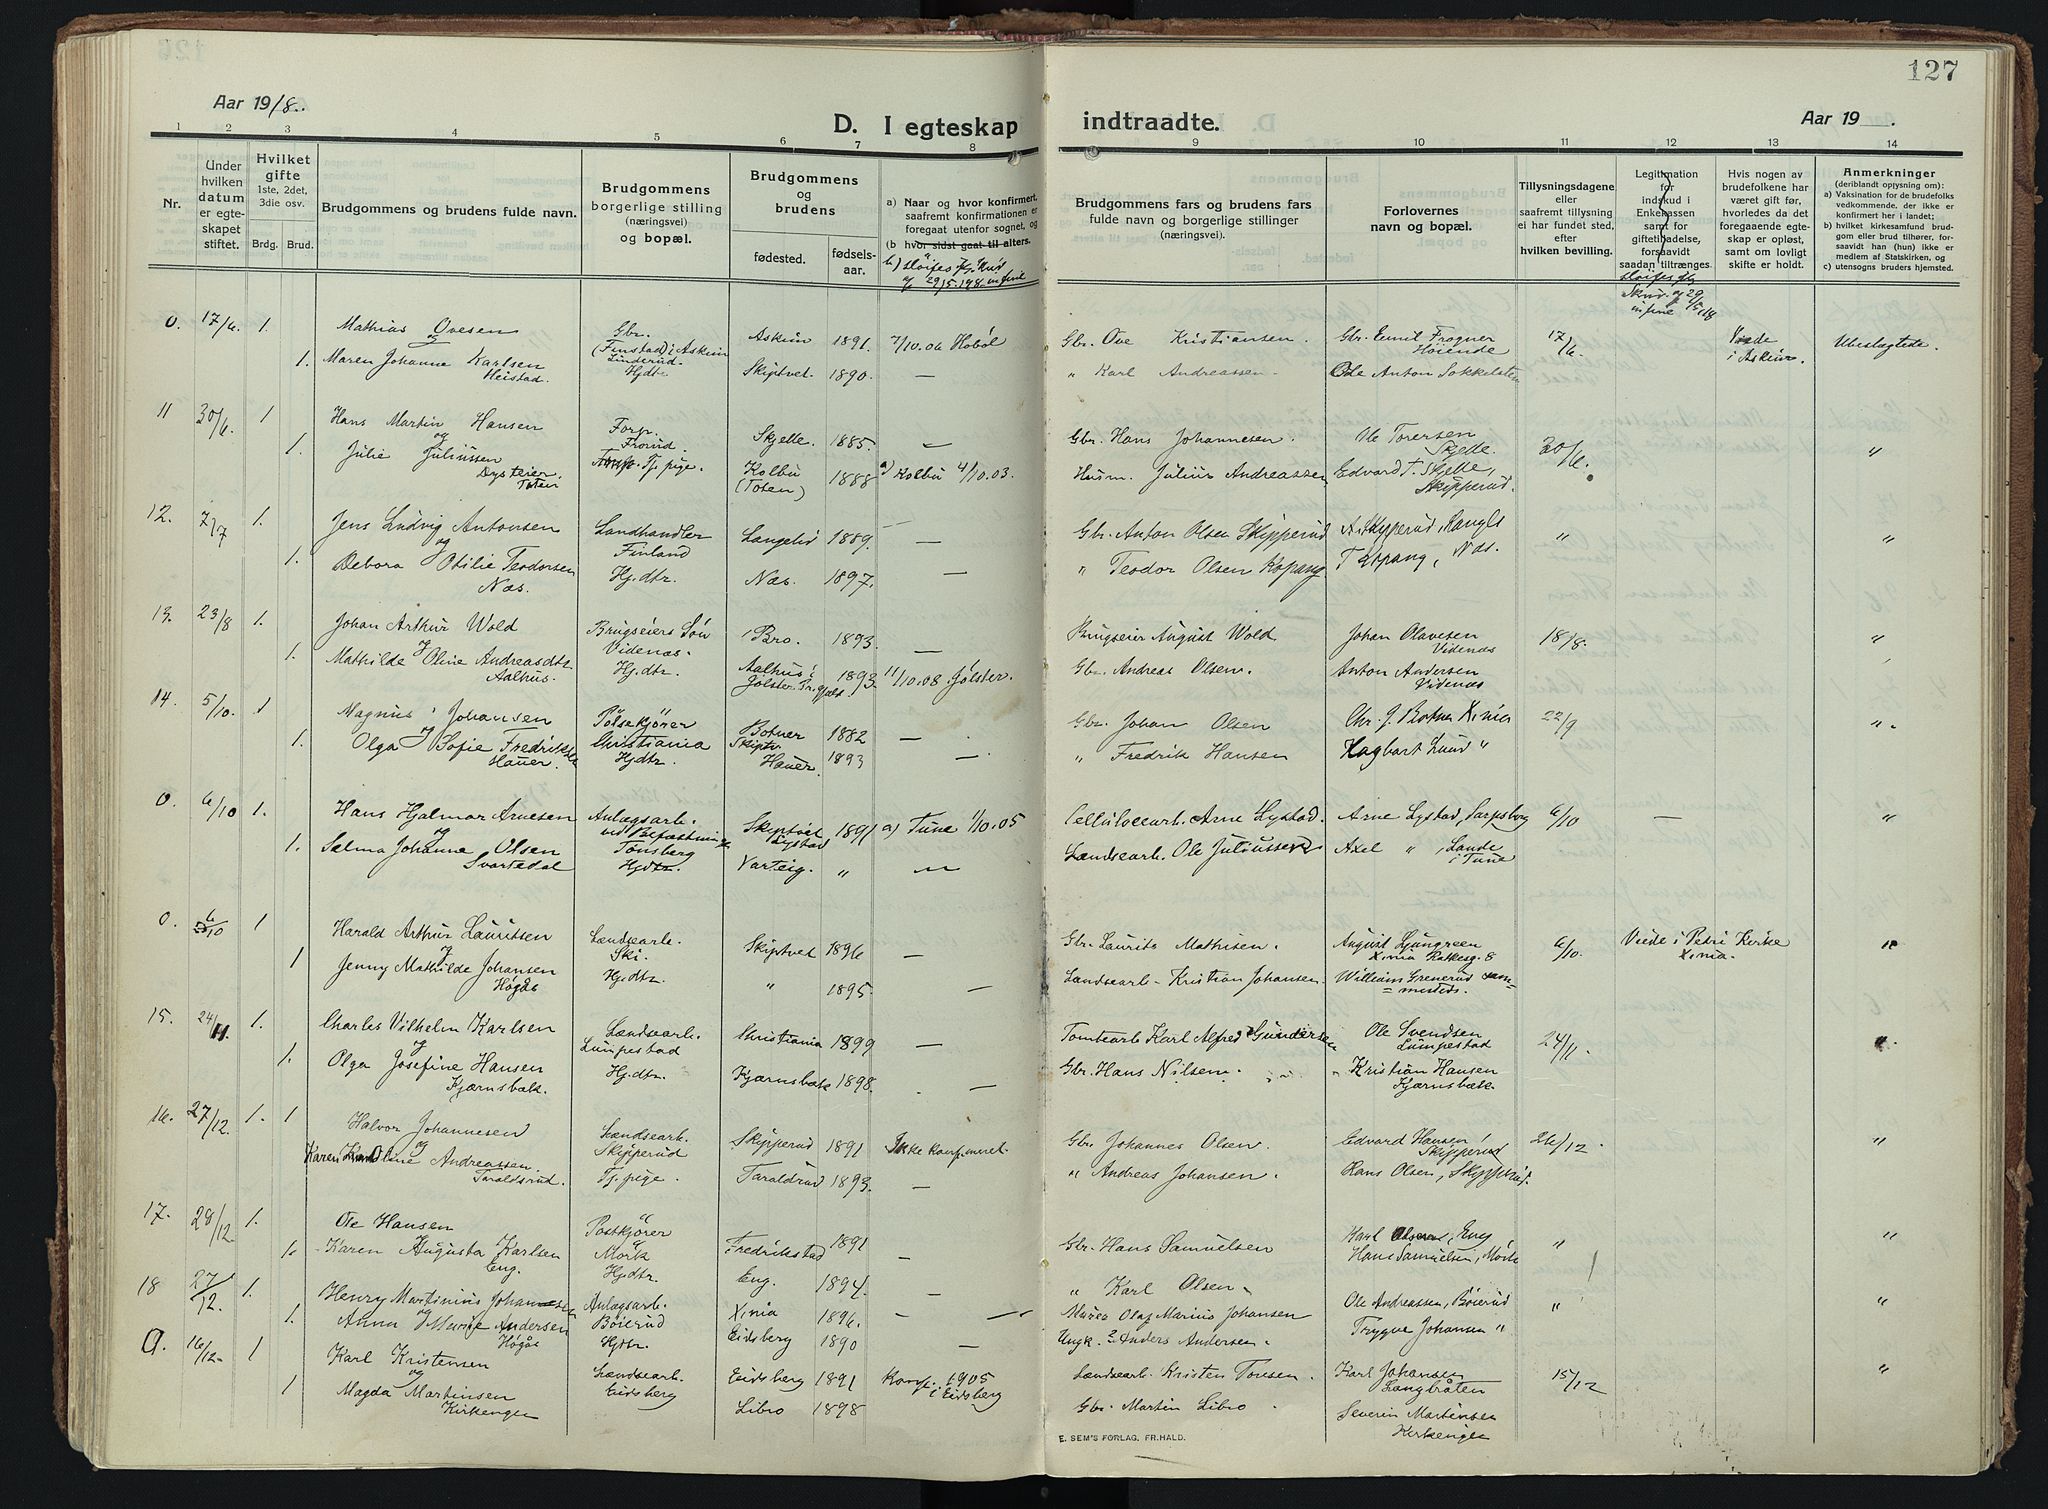 127
Aar 1918.
D. I egteskap indtraadte.
Aar 19
1 2 3 4 5 6 7 8 9 10 11 12 13 14
Nr.
Under hvilken datum er egteskapet stiftet.
Hvilket gifte 1ste, 2det, 3die osv.
Brdg. Brud.
Brudgommens og brudens fulde navn.
Brudgommens borgerlige stilling (næringsvei) og bopæl.
Brudgommens og brudens
fødested. fødselsaar.
a) Naar og hvor konfirmert, saafremt konfirmationen er foregaat utenfor sognet, og
(b hvor sidst gaat til alters.
Brudgommens fars og brudens fars fulde navn og borgerlige stillinger (næringsvei).
Forlovernes navn og bopæl.
Tillysningsdagene eller saafremt tillysning ei har fundet sted, efter hvilken bevilling.
Legitimation for indskud i Enkekassen samt for giftetilladelse, forsaavidt saadan tiltrænges
Hvis nogen av brudefolkene har været gift før, hvorledes da det foregaaende egteskap er opløst, samt om lovligt skifte er holdt.
Anmerkninger (deriblandt oplysning om): a) Vaksination for de brudefolks vedkommende, der ikke er konfirmert her i landet; b) hvilket kirkesamfund brudgom eller brud tilhører, forsaavidt han (hun) ikke er medlem af Statskirken, og c) utensogns bruders hjemsted.
0. 17/6. 1. Mathias Ovesen Gbr. Askim 1891. 7/10.06 Hobøl Gbr. Ove Kristiansen Gbr. Emil Frogner 17/6 Viede Ubeslægtede.
og (Finstad) i Askim Høiende i Askim.
1. Maren Johanne Karlsen Linderud Hjdtr. Skiptvet 1890. — " Karl Andreassen Ole Anton Sokkelsten
Heistad.
11 30/6. 1 Hans Martin Hansen Forp. Skjelle. 1885. — Gbr. Hans Johannesen. Ole Toresen 30/6. "
og Frorud. Skjelle.
1. Julie Juliussen Tj. pige. Kolbu 1888 a) Kolbu 4/10.03. Husm. Julius Andreassen Edvard T. Skjelle,
Dysteier Toten (Toten) Skipperud.
12. 7/7 1. Jens Ludvig Antonsen Landhandler Langelid 1889. — Gbr. Anton Olsen Skipperud A. Skipperud, " "
og Finland
1. Debora Otilie Teodorsen Hj.dtr. Næs. 1897. — " Teodor Olsen Kopang T. Kopang, Næs.
Næs.
13. 23/8 1. Johan Arthur Wold Brugseiers Søn Bro. 1893. — Brugseier August Wold Johan Olavesen 18/8. "
og Videnæs. Videnæs
1. Mathilde Oline Andreasdtr. Hj.dtr. Aalhus i 1893. 11/10.08 Jølster. Gbr. Andreas Olsen. Anton Andersen
Aalhus. Jølster Prgjæld. Videnæs
14. 5/10. 1 Magnus Johansen Pølsekjører Botner 1882 — Gbr. Johan Olsen Chr. J. Botner X.nia 22/9 "
og Christiania Skiptv.
1. Olga Sofie Fredriksen Hjdtr. Hauer. 1893 — " Fredrik Hansen Hagbart Lund "
Hauer.
0. 6/10 1. Hans Hjalmar Arnesen Anlægsarb. Skiptvet 1891 a) Tune 1/10.05 Cellulosearb. Arne Lystad. Arne Lystad, Sarpsborg 6/10 — "
og Lystad
1. Selma Johanne Olsen Tønsberg Varteig. " — Landsearb. Ole Juliussen Axel ", Lande
Svartedal Hjdtr. i Tune
0. 6/10 1 Harald Arthur Lauritsen Landsearb. Skiptvet 1896 — Gbr. Laurits Mathisen. August Ljungreen 6/10. Viede i Petri Kirke "
og Ski. X.nia Ratkesg. 8 X.nia.
1 Jenny Mathilde Johansen Hj.dtr. " 1895. — Landsearb. Kristian Johansen. William Grenerud sammesteds.
Høgås
15. 24/11. 1. Charles Vilhelm Karlsen Landsearb. Christiania 1899 — Tomtearb. Karl Alfred Gundersen Ole Svendsen 24/11 "
og Lumpestad Lumpestad
1. Olga Josefine Hansen Hj.dtr. Kjærnsbæk 1898. — Gbr. Hans Nilsen. Kristian Hansen
Kjærnsbæk. Kjærnsbæk.
16. 27/12. 1. 1 Halvor Johannesen Landsearb. Skipperud 1891 Ikke konfirmeret. Gbr. Johannes Olsen. Edvard Hansen, 26/12. "
og Skipperud Skipperud
Karen Oline Andreassen. Tj. pige. Taraldrud 1893. — " Andreas Johansen. Hans Olsen, Skipperud.
Taraldsrud.
17. 28/12. 1. Ole Hansen Postkjører Fredrikstad 1891 — Gbr. Hans Samuelsen Karl Olsen, Eng " "
1. Karen Augusta Karlsen Mørk Hj.dtr. Eng. 1894. — " Karl Olsen. Hans Samuelsen, Mørk
Eng.
18 27/12. 1. Henry Martinius Johansen Anlægsarb. X.nia 1896. — Murer Olaf Marius Johansen Ole Andreassen, Bøierud " "
og Bøierud
1. Anna Marie Andersen Hjdtr. Eidsberg 1890 — Ungk. ? Anders Andersen. Trygve Johansen "
Høgås
0. 16/12. 1 Karl Kristensen Landsearb. Eidsberg 1891 Konf. 1905 Landsearb. Kristen Tonsen. Karl Johansen 15/12 "
og Eidsberg i Eidsberg Langbråten
1 Magda Martinsen Libro 1898 Gbr. Martin Libro Severin Martinsen
Kirkengen Kirkengen
E. SEM'S FORLAG. FR. HALD.